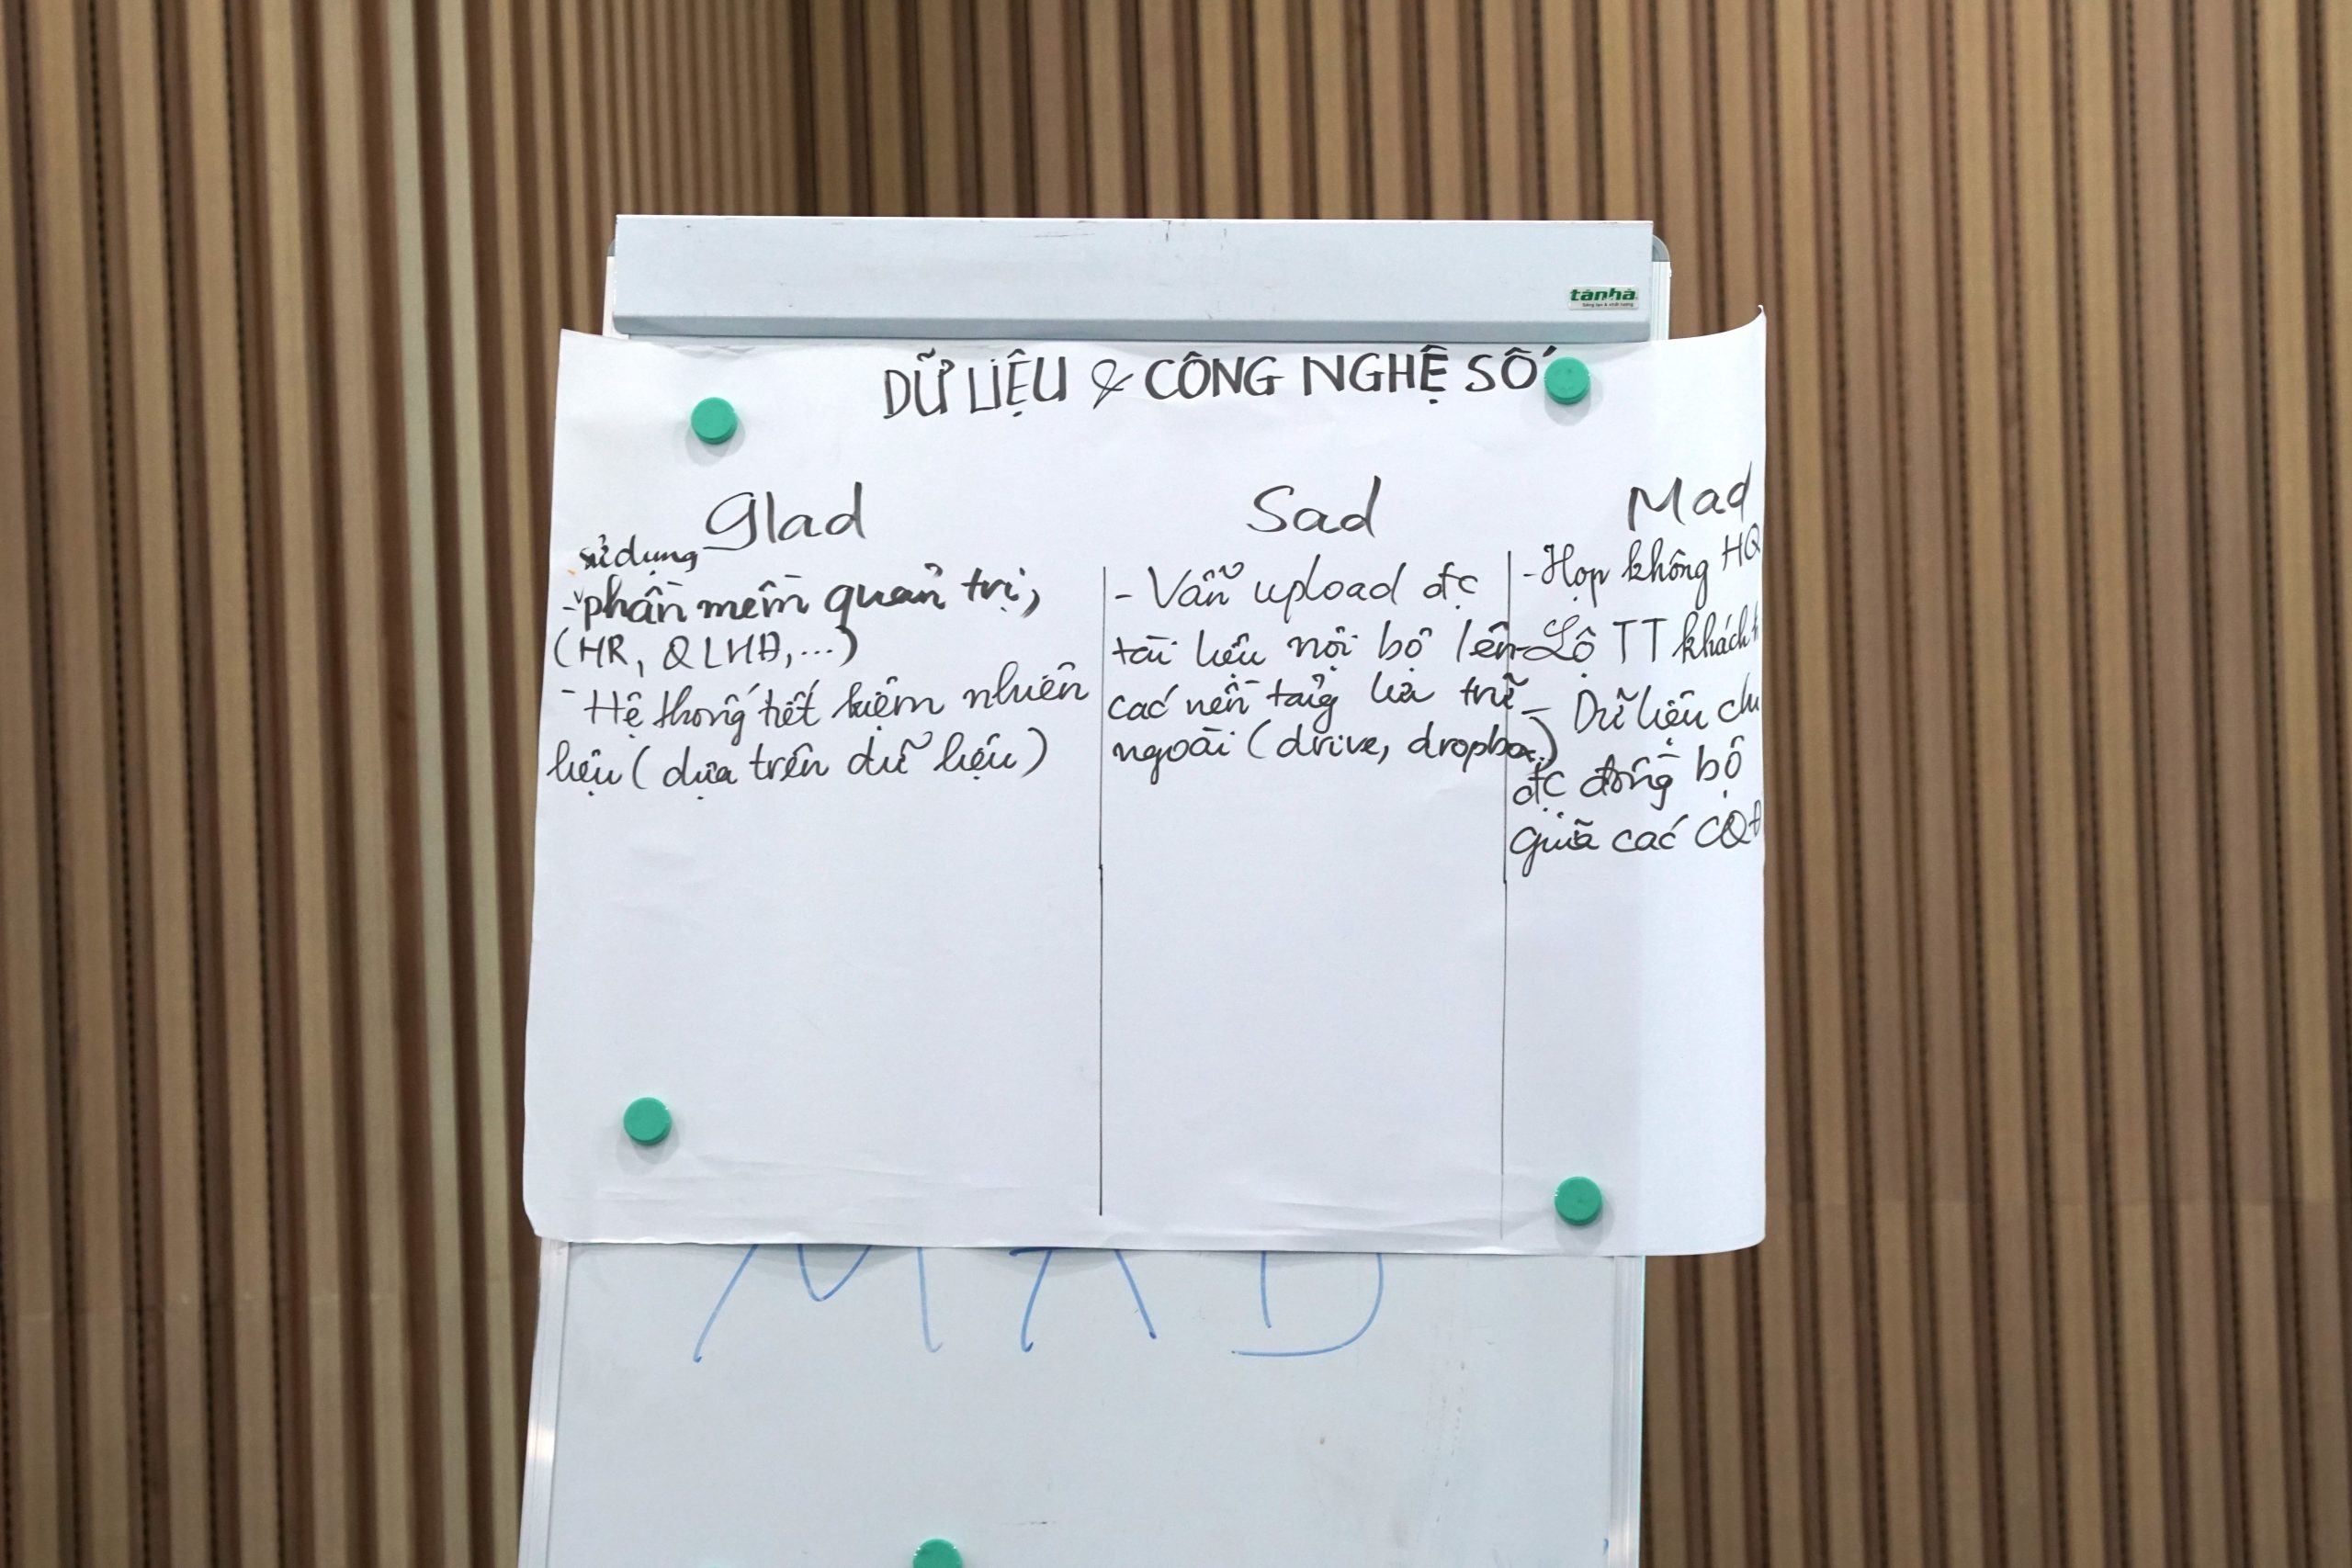 tânhà
DỮ LIỆU & CÔNG NGHỆ SỐ
Glad
sử dụng
- phần mềm quản trị,
(HR, QLHĐ,...)
- Hệ thống tiết kiệm nhiên
liệu (dựa trên dữ liệu)
Sad
- Vẫn upload đc
tài liệu nội bộ lên
các nền tảng lưu trữ
ngoài (drive, dropbox..)
Mad
- Họp không HQ
- Lộ TT khách
- Dữ liệu
đc đồng bộ
giữa các
MAD